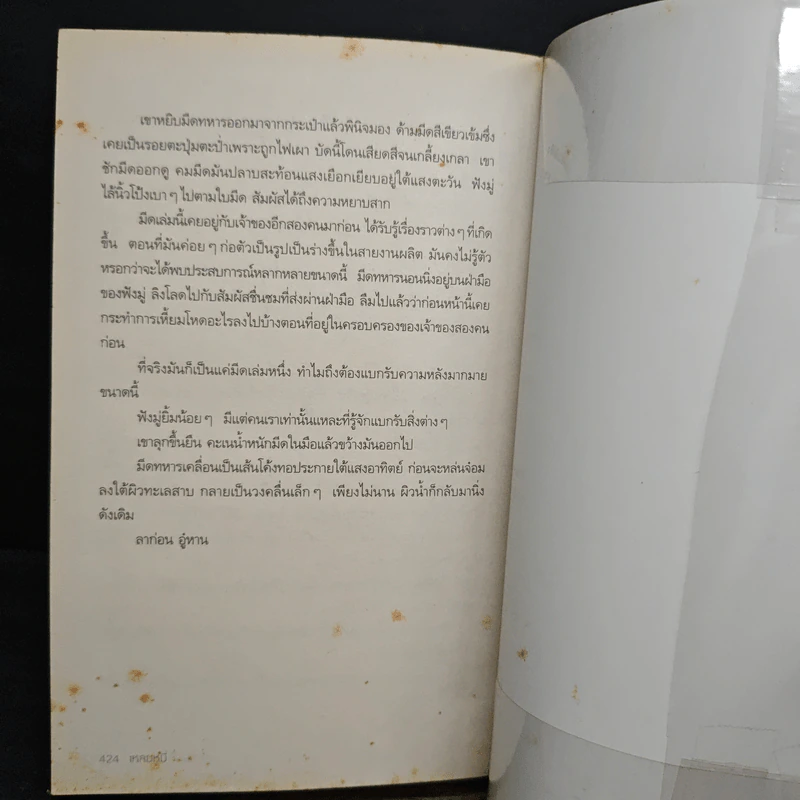 เขาหยิบมีดทหารออกมาจากกระเป๋าแล้วพินิจมอง ด้ามมีดสีเขียวเข้มซึ่ง
เคยเป็นรอยตะปุ่มตะป่ำเพราะถูกไฟเผา บัดนี้โดนเสียดสีจนเกลี้ยงเกลา เขา
ชักมีดออกดู คมมีดมันปลาบสะท้อนแสงเยือกเย็นอยู่ใต้แสงตะวัน ฟังมู่
ไล้นิ้วโป้งเบาๆ ไปตามใบมีด สัมผัสได้ถึงความหยาบสาก
มีดเล่มนี้เคยอยู่กับเจ้าของอีกสองคนมาก่อน ได้รับรู้เรื่องราวต่างๆ ที่เกิด
ขึ้น ตอนที่มันค่อยๆ ก่อตัวเป็นรูปเป็นร่างขึ้นในสายงานผลิต มันคงไม่รู้ตัว
หรอกว่าจะได้พบประสบการณ์หลากหลายขนาดนี้ มีดทหารนอนนิ่งอยู่บนฝ่ามือ
ของฟังมู่ ลิงโลดไปกับสัมผัสชื่นชมที่ส่งผ่านฝ่ามือ ลืมไปแล้วว่าก่อนหน้านี้เคย
กระทำการเหี้ยมโหดอะไรลงไปบ้างตอนที่อยู่ในครอบครองของเจ้าของสองคน
ก่อน
ที่จริงมันก็เป็นแค่มีดเล่มหนึ่ง ทำไมถึงต้องแบกรับความหลังมากมาย
ขนาดนี้
ฟังมู่ยิ้มน้อยๆ มีแต่คนเราเท่านั้นแหละที่รู้จักแบกรับสิ่งต่างๆ
เขาลุกขึ้นยืน คะเนน้ำหนักมีดในมือแล้วขว้างมันออกไป
มีดทหารเคลื่อนเป็นเส้นโค้งทอประกายใต้แสงอาทิตย์ ก่อนจะหล่นจ๋อม
ลงใต้ผิวทะเลสาบ กลายเป็นวงคลื่นเล็กๆ เพียงไม่นาน ผิวน้ำก็กลับมานิ่ง
ดังเดิม
ลาก่อน อู๋หาน
424